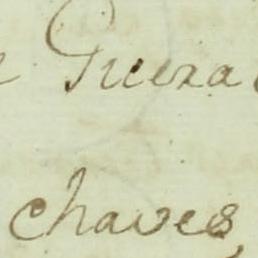 Guerra
chaves